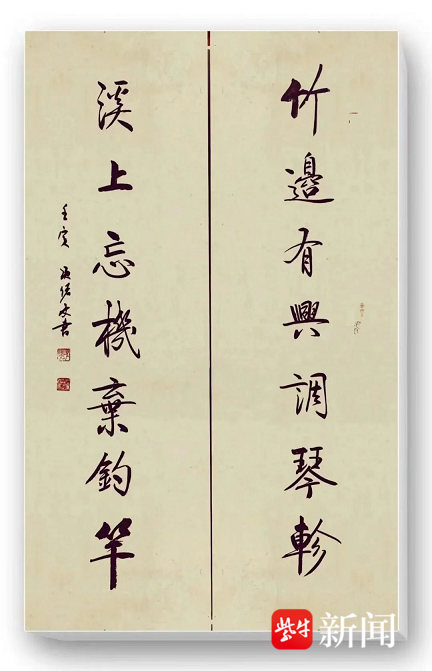 竹邊有興調琴軫
溪上忘機棄釣竿
壬寅
紫牛新闻